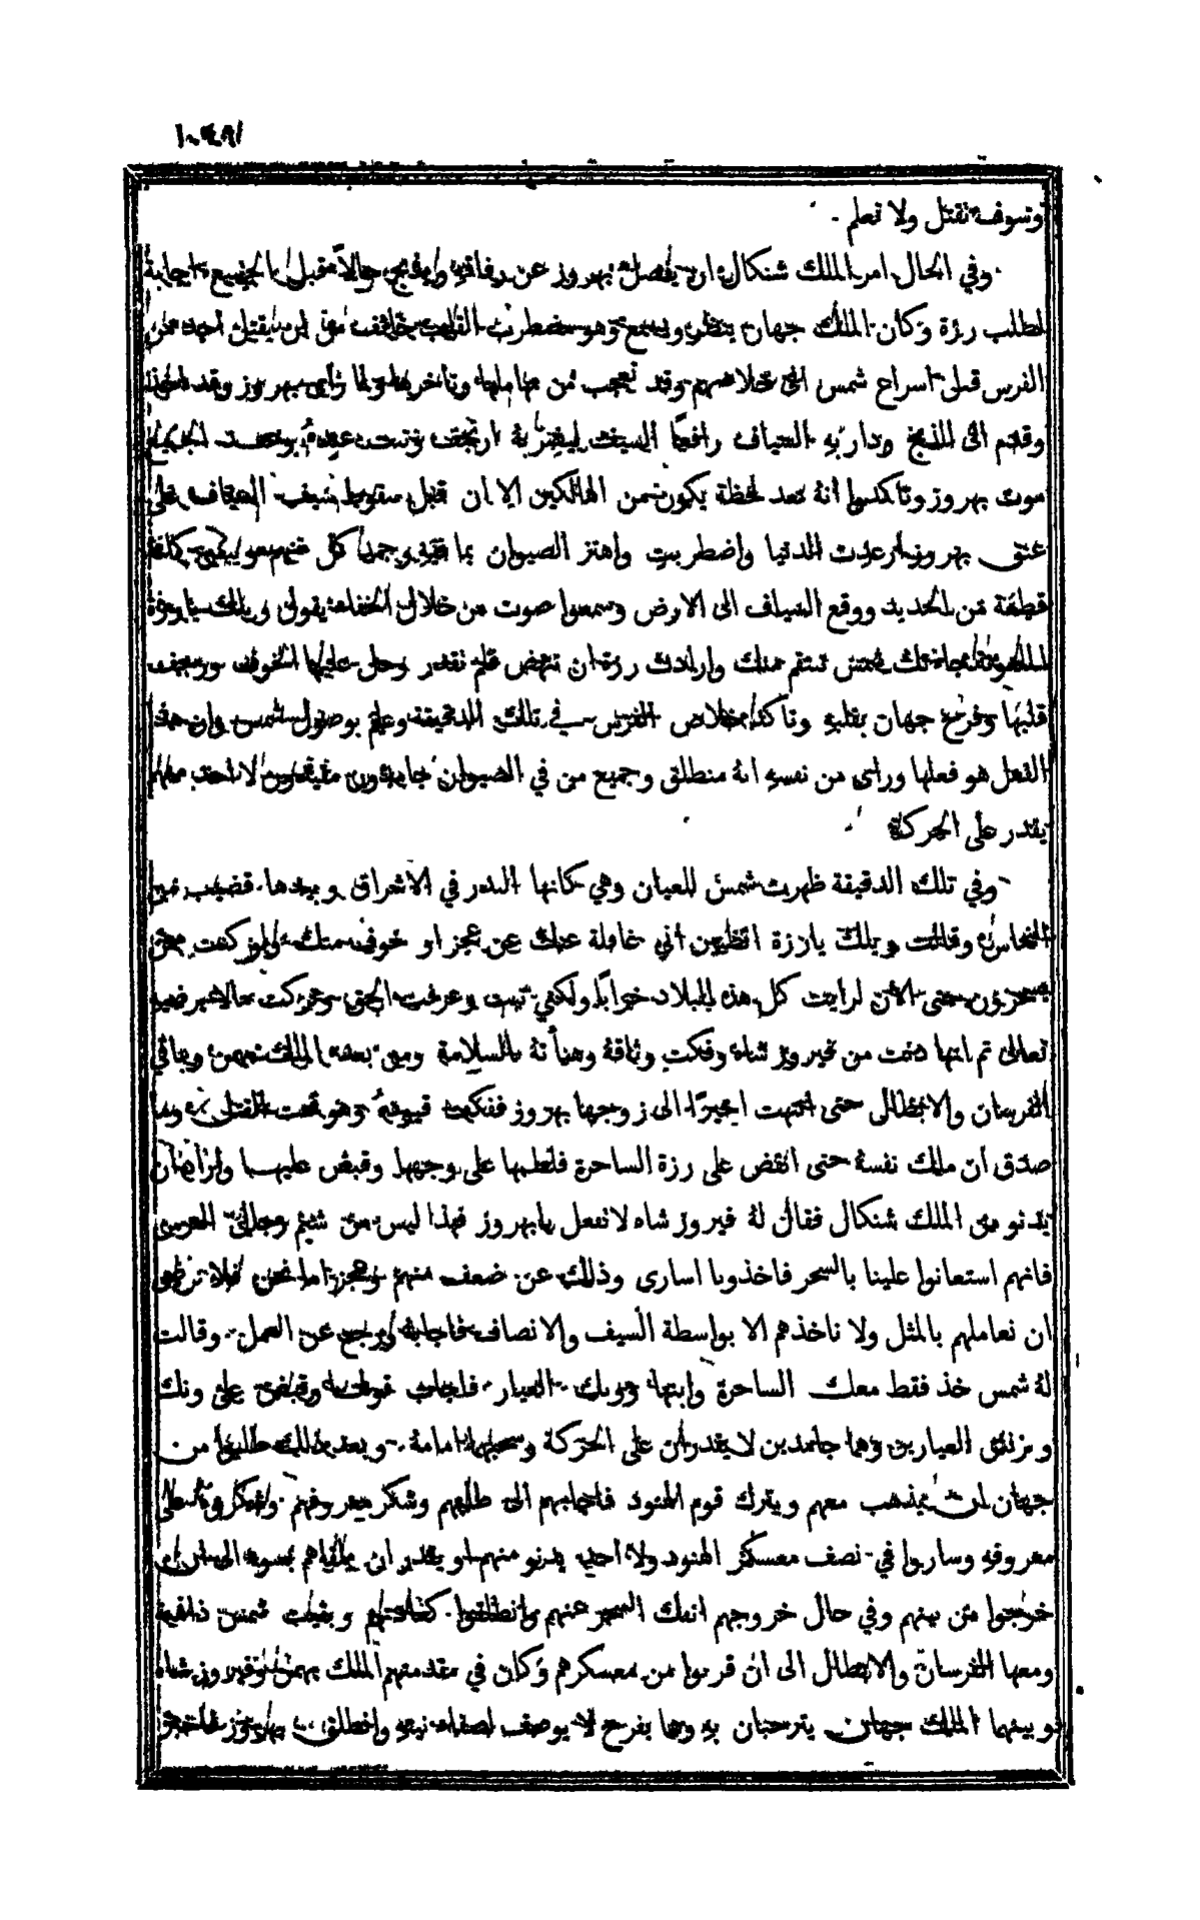 وسوف تقتل ولا تعلم .
وفي الحال امر الملك شنكال ان يفصل بهروز عن رفاقهِ ويذبح حالاً مقبل الجميع اجابة
لطلب رزة وكان الملك جهان ينظر ويسمع وهو مضطرب القلب خائف من ان يقتل احد من
الفرس قبل اسراع شمس الى خلاصهم وقد تعجب من تأخرها ولما رأى بهروز وقد اخذ
وقدم الى الذبح ودار بهِ السياف رافعًا السيف ليضربهُ ارتجف
موت بهروز وتاكدوا انهُ بعد لحظة يكون من الهالكين الا ان قبل سقوط سيف السياف على
عنق بهروز ارعدت الدنيا واضطربت واهتز الصيوان بما فيهِ وجمد كل منهم كانهُ
قطعة من الحديد ووقع السياف الى الارض وسمعوا صوت من خلال الخفاء يقول ويلك يا رزة
الملعونة لقد جاءتك شمس تنتقم منك وارادت رزة ان تنهض فلم تقدر وحل عليها الخوف ورجف
قلبها وفرح جهان بقلبهِ وتاكد خلاص الفرس في تلك الدقيقة وعلم بوصول شمس وان هذا
الفعل هو فعلها وراى من نفسهِ انهُ منطلق وجميع من في الصيوان جامدون مقيدون لا احد منهم
يقدر على الحركة
وفي تلك الدقيقة ظهرت شمس للعيان وهي كانها البدر في الاشراق وبيدها قضيب من
النحاس وقالت ويلك يا رزة اتظنين اني غافلة عنك عن عجز او خوف منك ولو كنت ممن
يسحرون حتى الآن لرايت كل هذه البلاد خرابًا ولكني تبت وعرفت الحق وتركت ما لا يرضيهِ
تعالى ثم انها دنت من فيروز شاه وفكت وثاقهُ وهنأتهُ بالسلامة ومن بعده الملك بهمن وباقي
الفرسان والابطال حتى انتهت اخيرًا الى زوجها بهروز ففكت قيوده وهو تحت القتل وما
صدق ان ملك نفسهُ حتى انقض على رزة الساحرة فلطمها على وجهها وقبض عليها واراد ان
يدنو من الملك شنكال فقال لهُ فيروز شاه لا تفعل يا بهروز فهذا ليس من شيم رجال الفرس
فانهم استعانوا علينا بالسحر فاخذونا اسارى وذلك عن ضعف منهم وعجز اما نحن فلا نرضى
ان نعاملهم بالمثل ولا ناخذهم الا بواسطة السيف والانصاف فاجابهُ ورجع عن العمل. وقالت
لهُ شمس خذ فقط معك الساحرة وابنها وونك العيار فاجاب قولها وقبض على ونك
العيارين وهما جامدين لا يقدران على الحركة وسحبهما امامهُ. وبعد ذلك طلبوا من
جهان ان يذهب معهم ويترك قوم الهنود فاجابهم الى طلبهم وشكر معروفهم وشكروه على
معروفهِ وساروا في نصف معسكر الهنود ولا احد يدنو منهم او يقدر ان يلقاهم بسوء الى ان
خرجوا من بينهم وفي حال خروجهم انفك السحر عنهم وانطلقوا كعادتهم وبقيت شمس ذاهبة
ومعها الفرسان والابطال الى ان قربوا من معسكرهم وكان في مقدمتهم الملك بهمن وفيروز شاه
وبينهما الملك جهان يترحبان بهِ وهما بفرح لا يوصف لصفاء نيتهِ وانطلق بهروز فاخبر